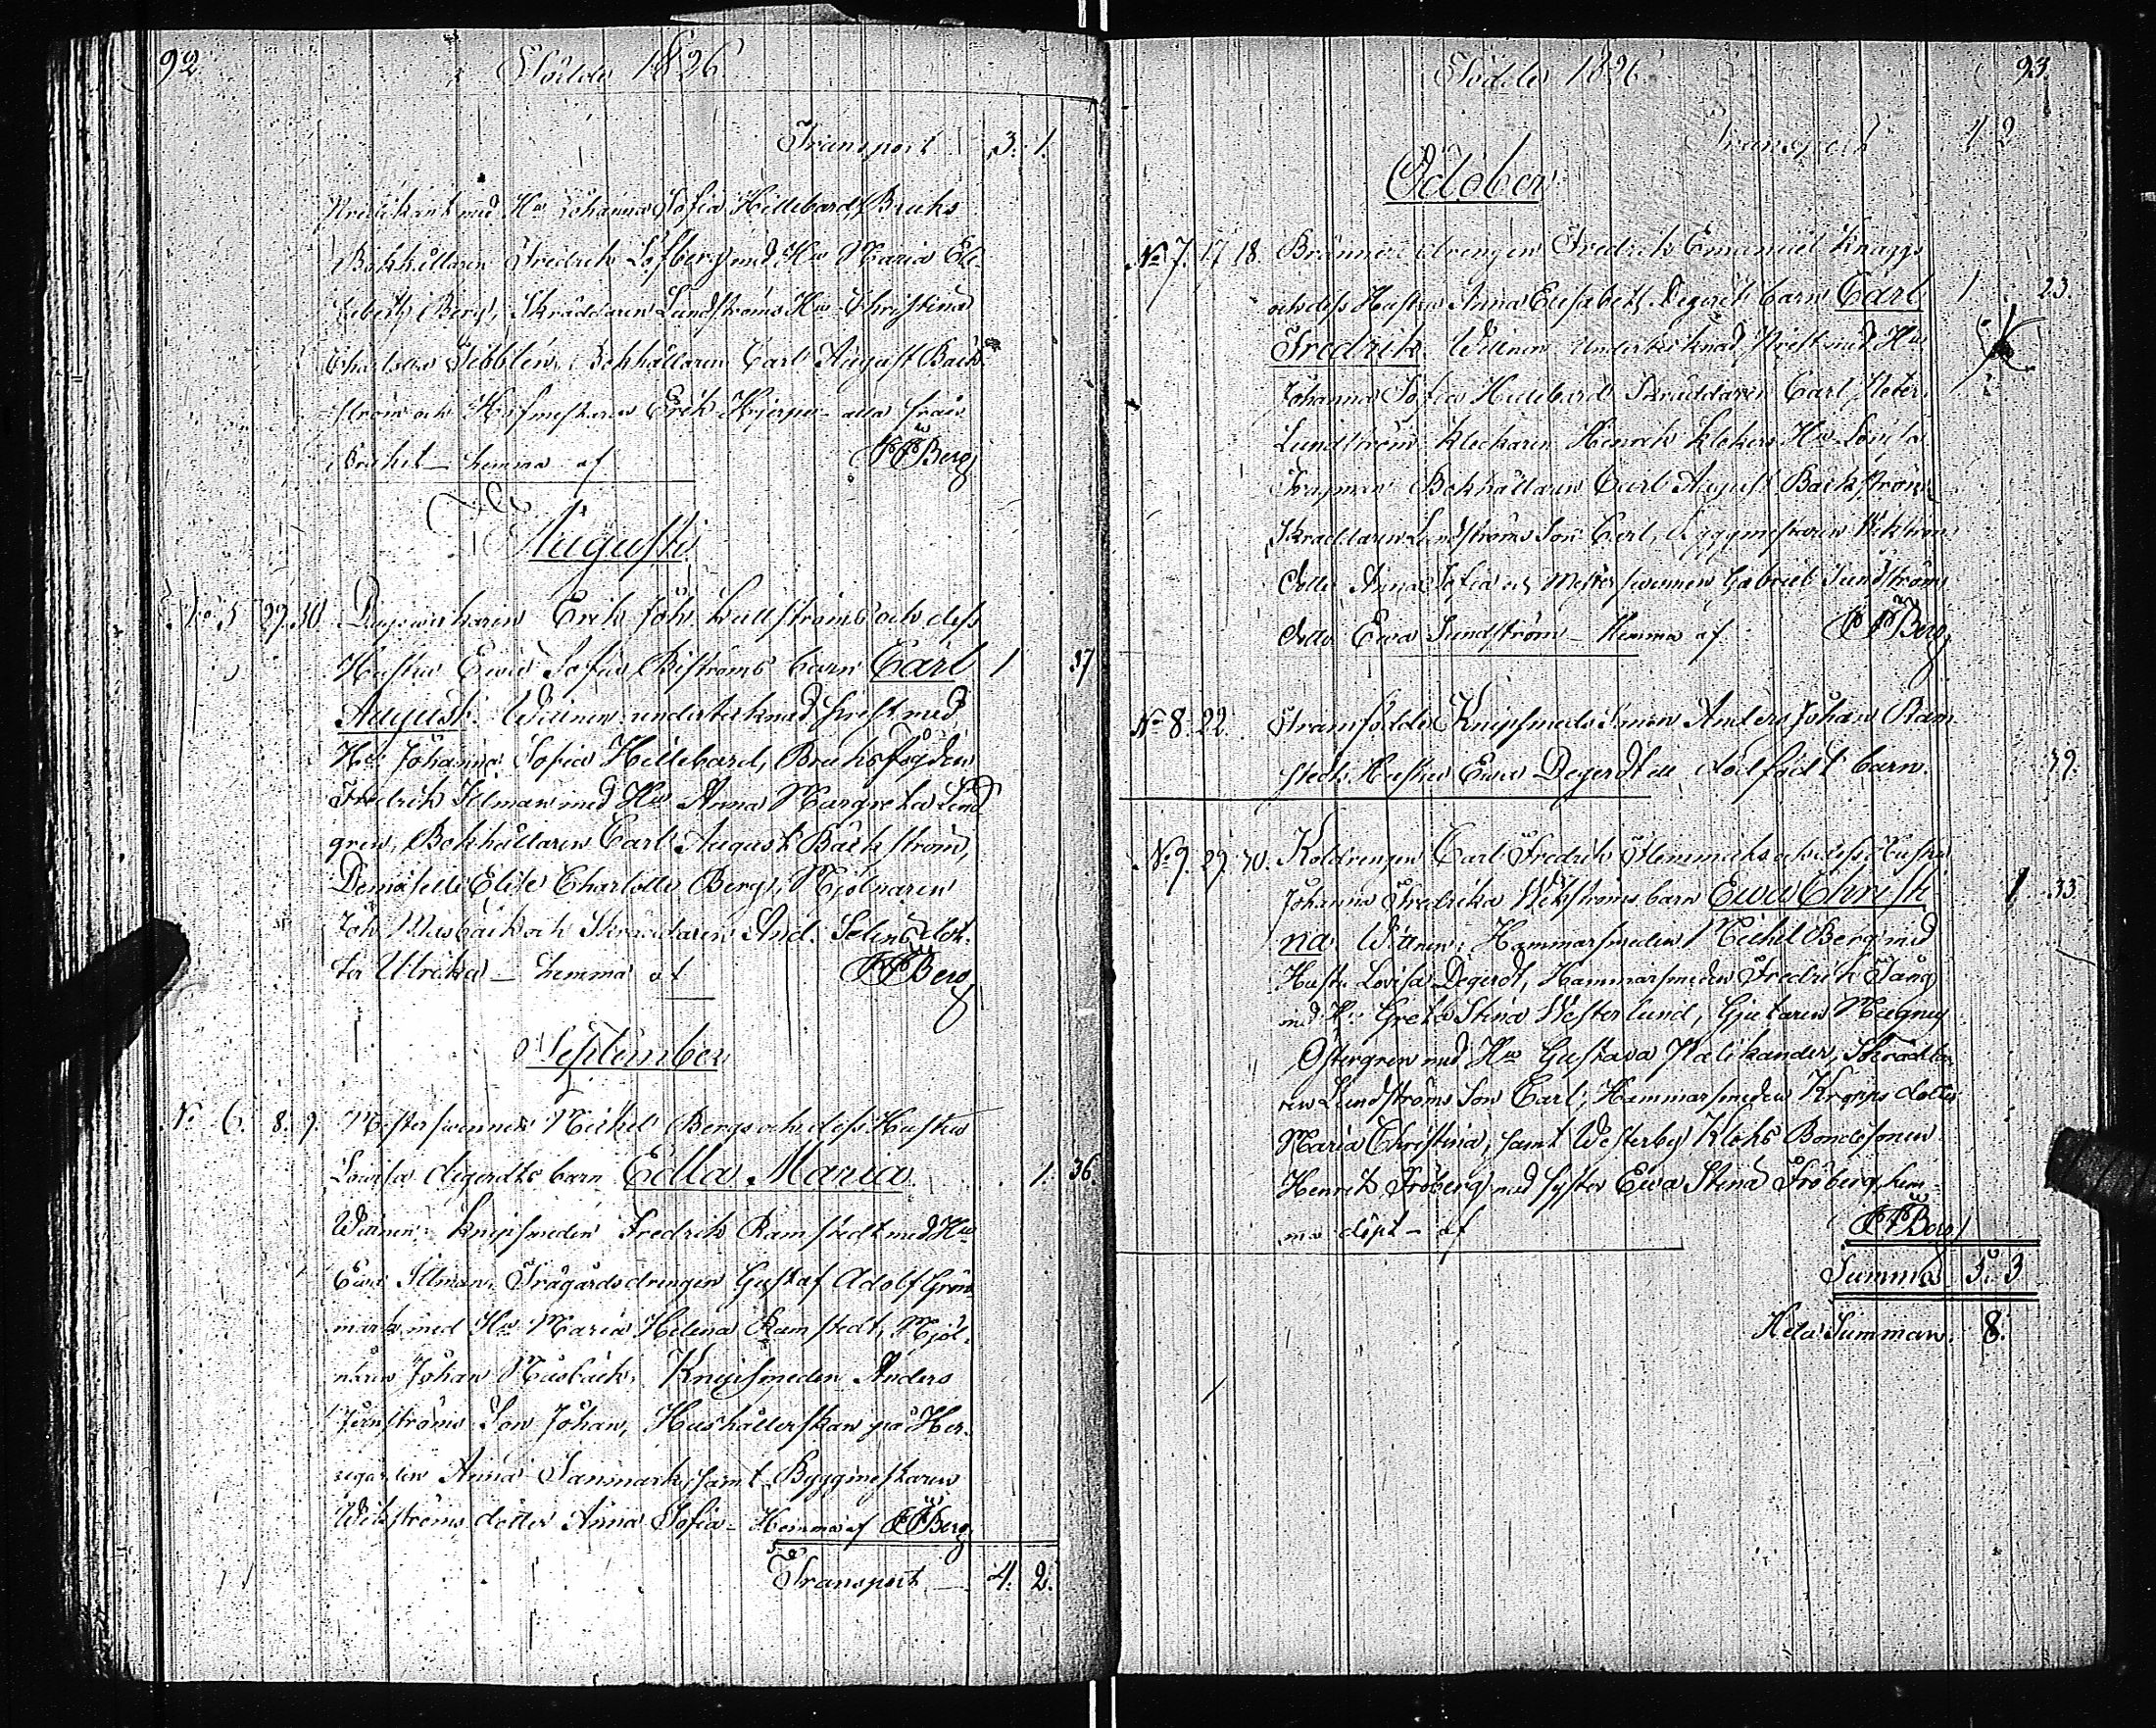 92
Födde 1826
Transport 3. 1.
Predikant med Hu Johanna Sofia Hillebard, Bruks
Bokhållaren Fredrik Löfberg med Hu Maria Eli-
sabeth Berg, Skräddaren Lundströms Hu Christina
Charlotta Tibblin, Bokhållaren Carl August Bäck-
ström och Hofmestaren Erik Hjerpe alla från
Bruket – hemma af FPBerg
Augusti
No 5 29. 30. Dagswerkaren Erik Joh. Kullströms och dess
Hustru Ewa Sofia Biströms barn Carl 1 37
August. Wittnen: undertecknad Prest med
Hu Johanna Sofia Hillebard, Bruksfogden
Fredrik Illman med Hu Anna Margreta Lind-
gren, Bokhållaren Carl August Bäckström,
Demoiselle Elise Charlotte Berg, Mjölnaren
Joh. Musbäck och Skräddaren And. Selins dot-
ter Ulrika – hemma af FPBerg
September
No 6. 8. 9. Mestersvennen Michel Bergs och dess Hustru
Lovisa Degerdts barn Edla Maria 1. 36.
Wittnen: Knipsmeden Fredrik Ramstedt med Hu
Ewa Illman, Trägårdsdrengen Gustaf Adolf Grön-
mark med Hu Maria Helena Ramstedt, Mjöl-
naren Johan Musbäck, Knipsmeden Anders
Jernströms Son Johan, Hushållerskan på Her-
regården Anna Sanmark, samt Byggmestaren
Wikströms dotter Anna Sofia – Hemma af FPBerg
Transport 4. 2.
93
Födde 1826
Transport 4 2
October
No 7. 17. 18. Brännerie drengen Fredrik Emanuel Knapps
och dess Hustru Anna Elisabeth Degerdts barn Carl 1 23.
Fredrik Wittnen undertecknad Prest med Hu
Johanna Sofia Hillebard Skräddaren Carl Peter
Lundström Klockaren Henrik Kleckers Hu Lovisa
Bokhållaren Carl August Bäckström
Skräddaren Lundströms Son Carl, Byggmestaren Wikströms
dotter Anna Sofia och Mestersvennen Gabriel Sundströms
dotter Ewa Sundström – Hemma af FPBerg
No 8. 22. Framfödde Knipsmeds Anders Johan Ram-
stedts Hustru Ewa Degerdt ett dödfödt barn. 39.
No 9. 29. 30. Koldrengen Carl Fredrik Flemmichs och dess Hustru
Johanna Fredrika Wikströms barn Ewa Christi- 1 33.
na Wittnen: Hammarsmeden Michel Berg med
Hustru Lovisa Degerdt, Hammarsmeden Fredrik Tång
med Hu Greta Stina Westerlund, Gjutaren Magnus
Östergren med Hu Gustava Wälikander, Skrädda-
ren Lundströms Son Carl, Hammarsmeden Knapps dotter
Maria Christina, samt Westerby Kloks Bondesonen
Henrik Fröberg med syster Ewa Stina Fröberg, hem-
ma döpt – af FPBerg
Summa 5. 3
Hela Summan. 8.